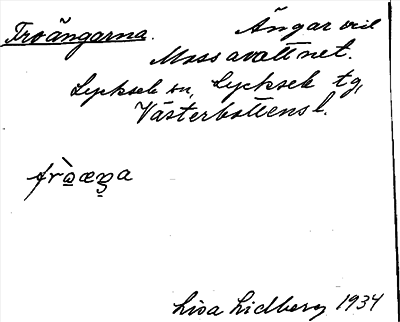 Froängarna. Ängar vid
Mossavattnet.
Lycksele sn, Lycksele tg,
Västerbottens l.
Lisa Lidberg 1934